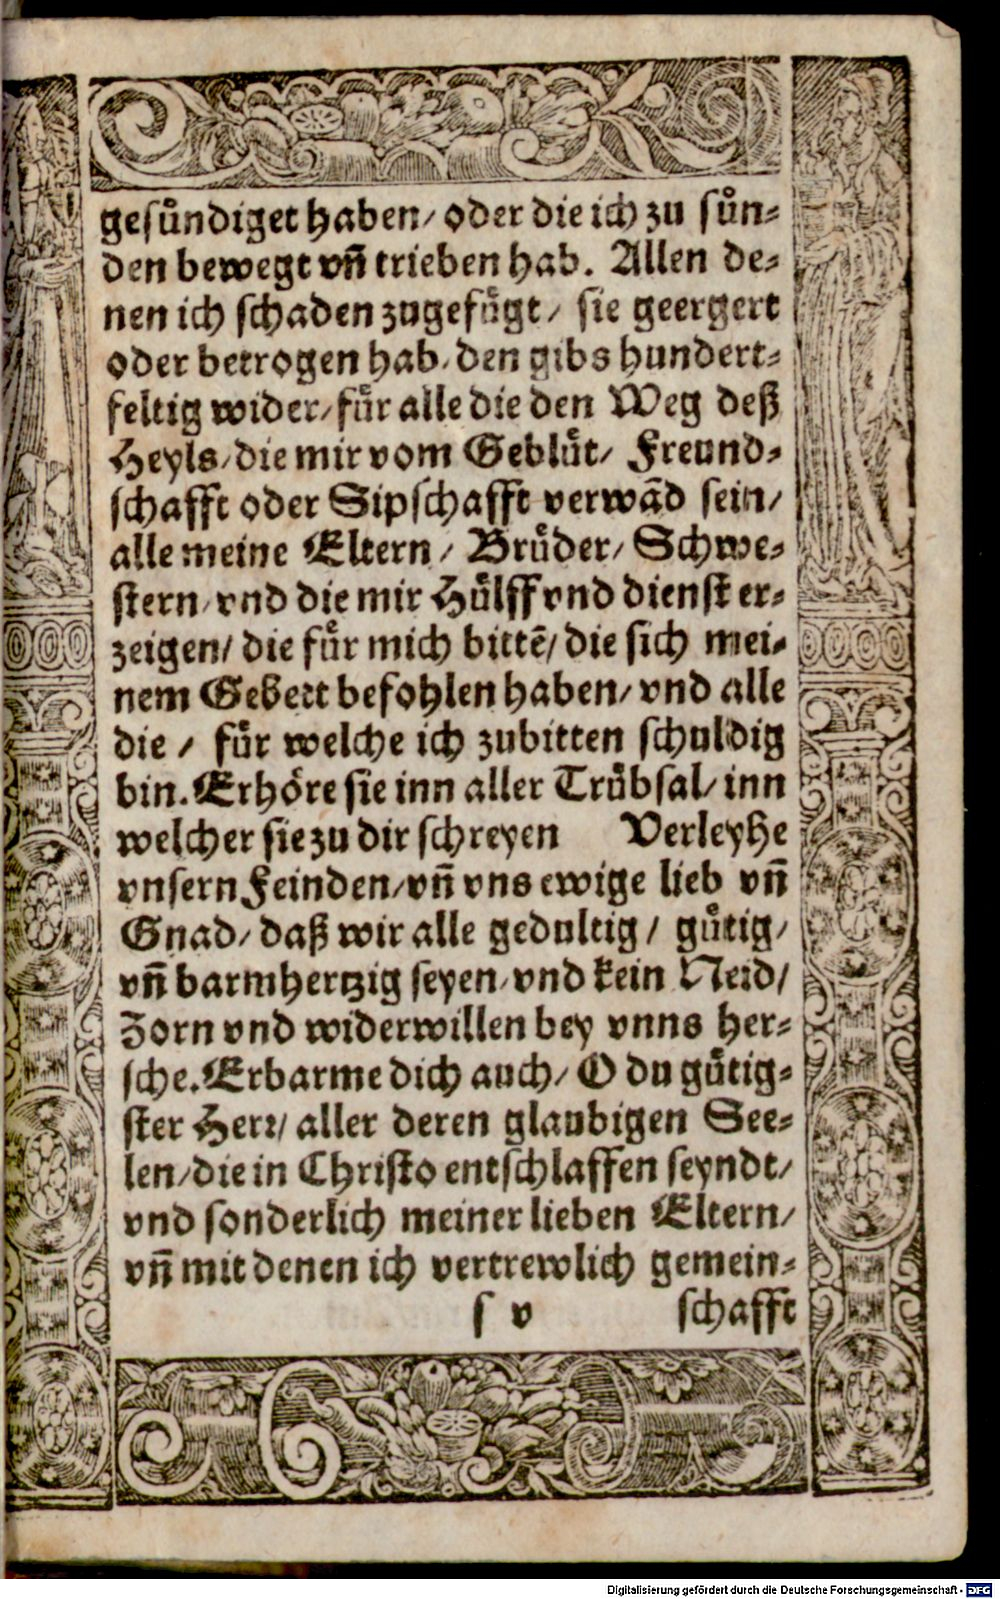 gesuͤndiget haben/ oder die ich zu suͤn⸗
den bewegt vñ trieben hab. Allen de⸗
nen ich schaden zugefuͤgt/ sie geergert
oder betrogen hab/ den gibs hundert⸗
feltig wider/ fuͤr alle die den Weg deß
Heyls/ die mir vom Gebluͤt/ Freund⸗
schafft oder Sipschafft verwãd sein/
alle meine Eltern/ Bruͤder/ Schwe⸗
stern/ vnd die mir Huͤlff vnd dienst er⸗
zeigen/ die fuͤr mich bittẽ/ die sich mei⸗
nem Gebett befohlen haben/ vnd alle
die/ fuͤr welche ich zubitten schuldig
bin. Erhoͤre sie inn aller Truͤbsal/ inn
welcher sie zu dir schreyen Verleyhe
vnsern Feinden/ vñ vns ewige lieb vñ
Gnad/ daß wir alle gedultig/ guͤtig/
vñ barmhertzig seyen/ vnd kein Neid/
Zorn vnd widerwillen bey vnns her⸗
sche. Erbarme dich auch/ O du guͤtig⸗
ster Herr/ aller deren glaubigen See⸗
len/ die in Christo entschlaffen seyndt/
vnd sonderlich meiner lieben Eltern/
vñ mit denen ich vertrewlich gemein⸗
s v schafft
Digitalisierung gefördert durch die Deutsche Forschungsgemeinschaft - DFG